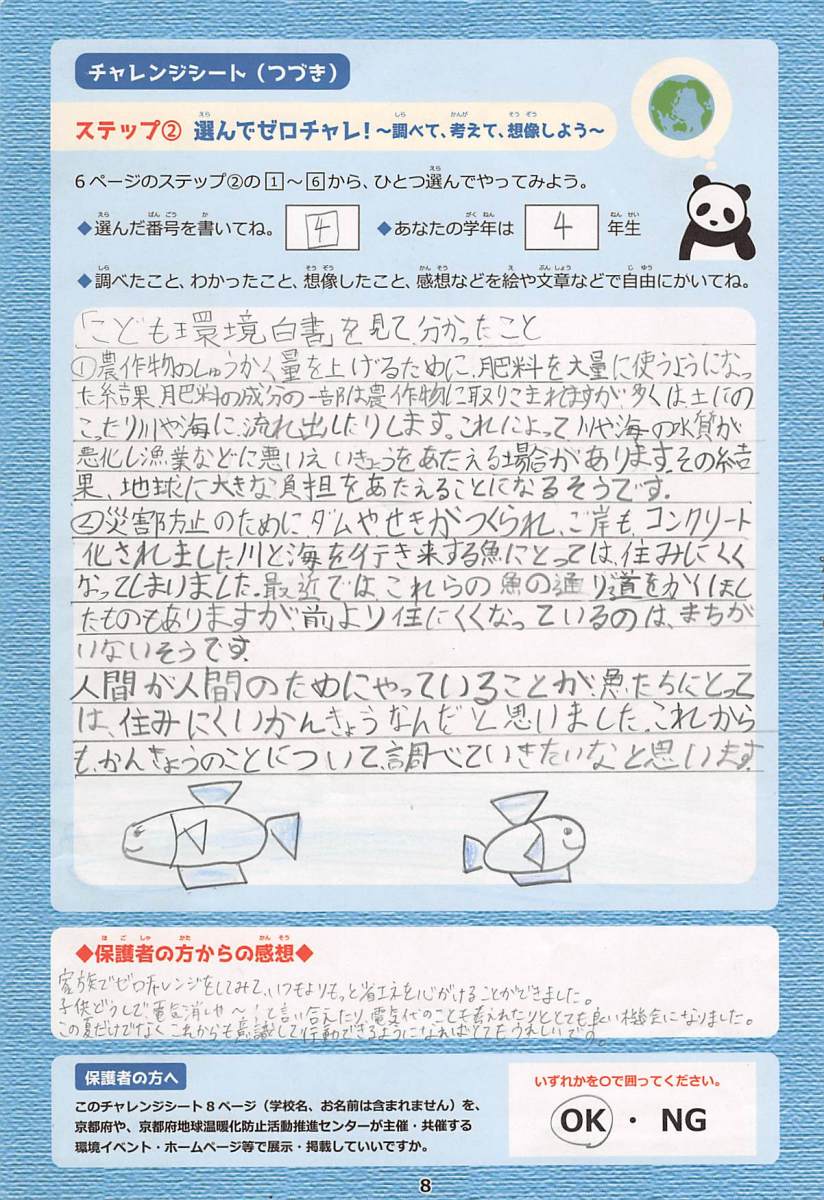 チャレンジシート（つづき）
ステップ② 選んでゼロチャレ！～調べて、考えて、想像しよう～
6ページのステップ②の1～6から、ひとつ選んでやってみよう。
◆選んだ番号を書いてね。 4 ◆あなたの学年は 4 年生
◆調べたこと、わかったこと、想像したこと、感想などを絵や文章などで自由にかいてね。
「こども環境白書」を見て、分かったこと
①農作物のしゅうかく量を上げるために、肥料を大量に使うようになっ
た結果、肥料の成分の一部は農作物に取りこまれますが、多くは土にの
こったり川や海に、流れ出したりします。これによって川や海の水質が
悪化し漁業などに悪いえいきょうをあたえる場合があります。その結
果、地球に大きな負担をあたえることになるそうです。
②災害防止のために、ダムや、せきがつくられ、ご岸も、コンクリート
化されました。川と海を行き来する魚にとっては、住みにくく
なってしまりました。最近では、これらの魚の通り道をかくほし
たものもありますが、前より住にくくなっているのは、まちが
いないそうです。
人間が人間のためにやっていることが、魚たちにとって
は、住みにくいかんきょうなんだと思いました。これから
も、かんきょうのことについて、調べていきたいなと思います。
◆保護者の方からの感想◆
家族でゼロチャレンジをしてみて、いつもよりもっと省エネを心がけることができました。
子供どうしで、電気消しや～！と言い合えたり、電気代のことも考えれたりととても良い機会になりました。
この夏だけでなくこれからも意識して行動できるようになればとてもうれしいです。
保護者の方へ
このチャレンジシート8ページ（学校名、お名前は含まれません）を、
京都府や、京都府地球温暖化防止活動推進センターが主催・共催する
環境イベント・ホームページ等で展示・掲載していいですか。
いずれかを○で囲ってください。
OK ・ NG
8